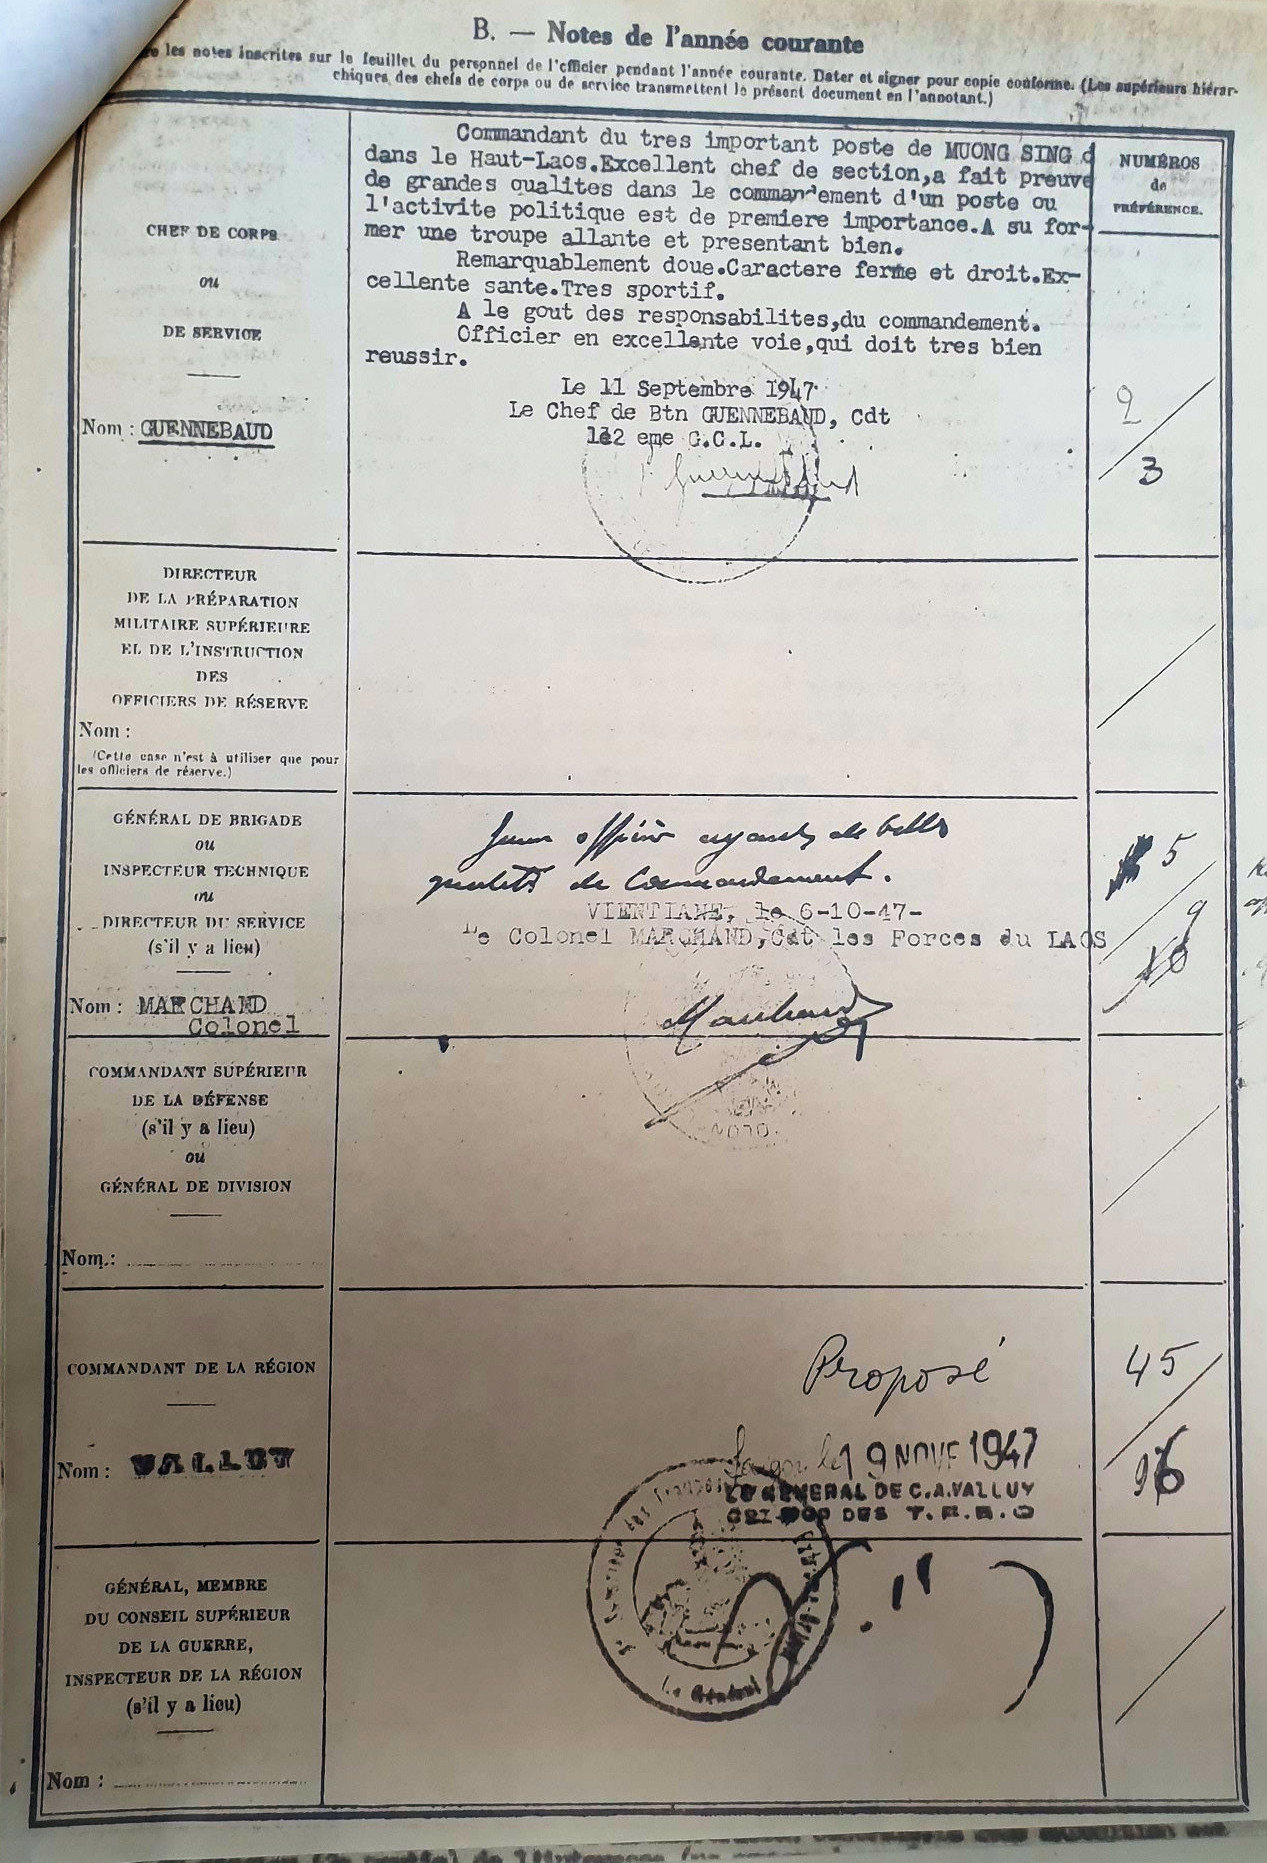 B. — Notes de l'année courante
les notes inscrites sur le feuillet du personnel de l'officier pendant l'année courante. Dater et signer pour copie conforme. (Les supérieurs hiérar-
chiques des chefs de corps ou de service transmettent le présent document en l'annotant.)
CHEF DE CORPS
ou
DE SERVICE
Nom : GUENNEBAUD
Commandant du tres important poste de MUONG SING d
dans le Haut-Laos.Excellent chef de section,a fait preuve
de grandes qualites dans le commandement d'un poste ou
l'activite politique est de premiere importance.A su for-
mer une troupe allante et presentant bien.
Remarquablement doue.Caractere ferme et droit.Ex-
cellente sante.Tres sportif.
A le gout des responsabilites,du commandement.
Officier en excellente voie,qui doit tres bien
reussir.
Le 11 Septembre 1947
Le Chef de Btn GUENNEBAUD, Cdt
le2 eme G.C.L.
NUMÉROS
de
PRÉFÉRENCE.
2
3
DIRECTEUR
DE LA PRÉPARATION
MILITAIRE SUPÉRIEURE
EL DE L'INSTRUCTION
DES
OFFICIERS DE RÉSERVE
Nom :
(Cette case n'est à utiliser que pour
les officiers de réserve.)
GÉNÉRAL DE BRIGADE
ou
INSPECTEUR TECHNIQUE
ou
DIRECTEUR DU SERVICE
(s'il y a lieu)
Nom : MARCHAND
Colonel
Jeune officier ayant de belles
qualités de commandement.
VIENTIANE, le 6-10-47-
Le Colonel MARCHAND,Cdt les Forces du LAOS
Marchand
5
9
10
COMMANDANT SUPÉRIEUR
DE LA DÉFENSE
(s'il y a lieu)
ou
GÉNÉRAL DE DIVISION
Nom :
COMMANDANT DE LA RÉGION
Nom : VALLUY
Proposé
Saigon le 19 NOVE 1947
LE GENERAL DE C.A.VALLUY
DES T.F.E.O
45
96
GÉNÉRAL, MEMBRE
DU CONSEIL SUPÉRIEUR
DE LA GUERRE,
INSPECTEUR DE LA RÉGION
(s'il y a lieu)
Nom :
Le Général